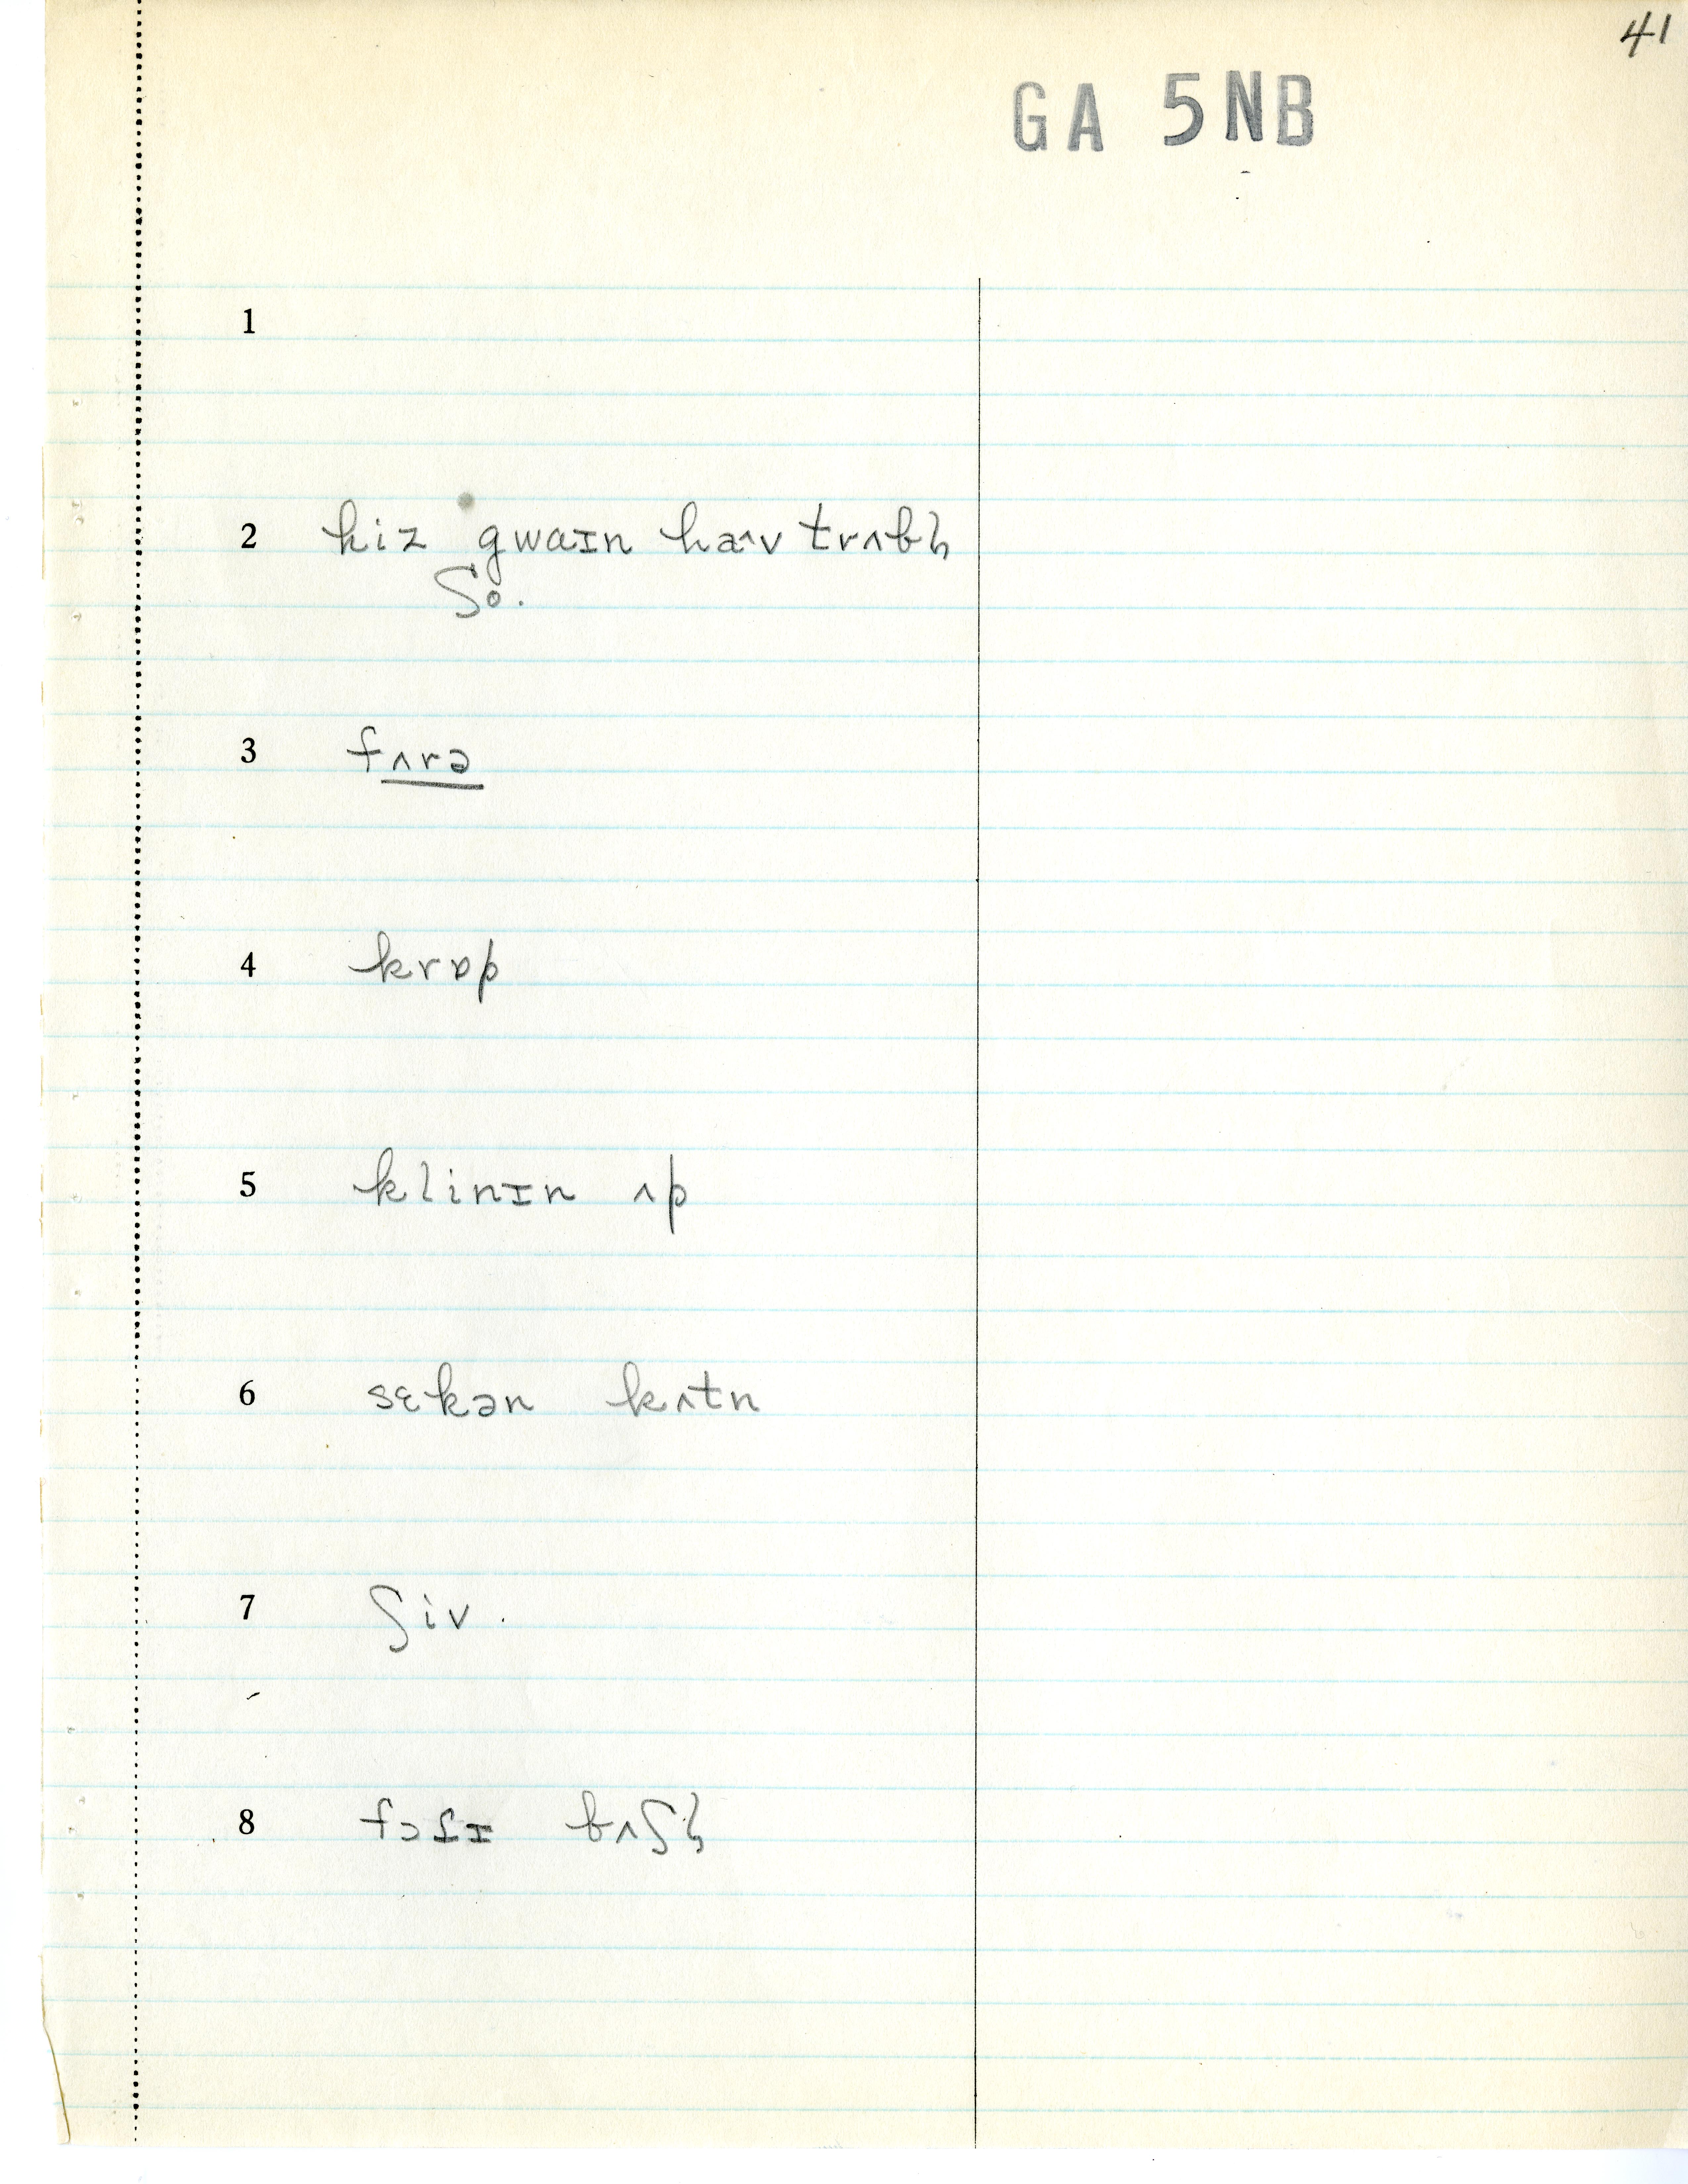 41
GA 5NB
1
2 hiz gwaɪn hæ^v trʌbl̩
ʃo.
3 fʌrə
4 krɒp
5 klinɪn ʌp
6 sɛkən kʌtn
7 ʃiv.
8 fɔɾɪ bʌʃl̩